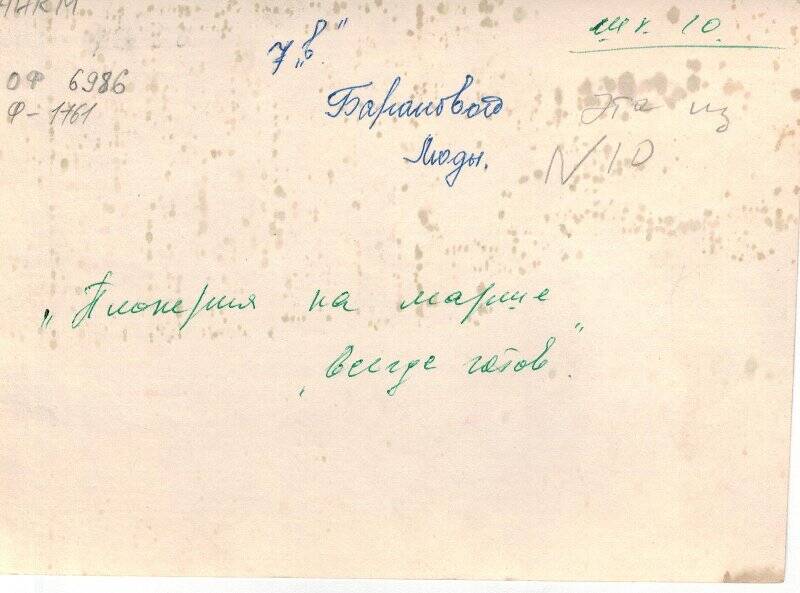 шк. 10
7 „в"
ОФ 6986
Ф-1761
Барановой
Люды.
Эта из
N 10
„Пионерия на марше
„всегда готов".